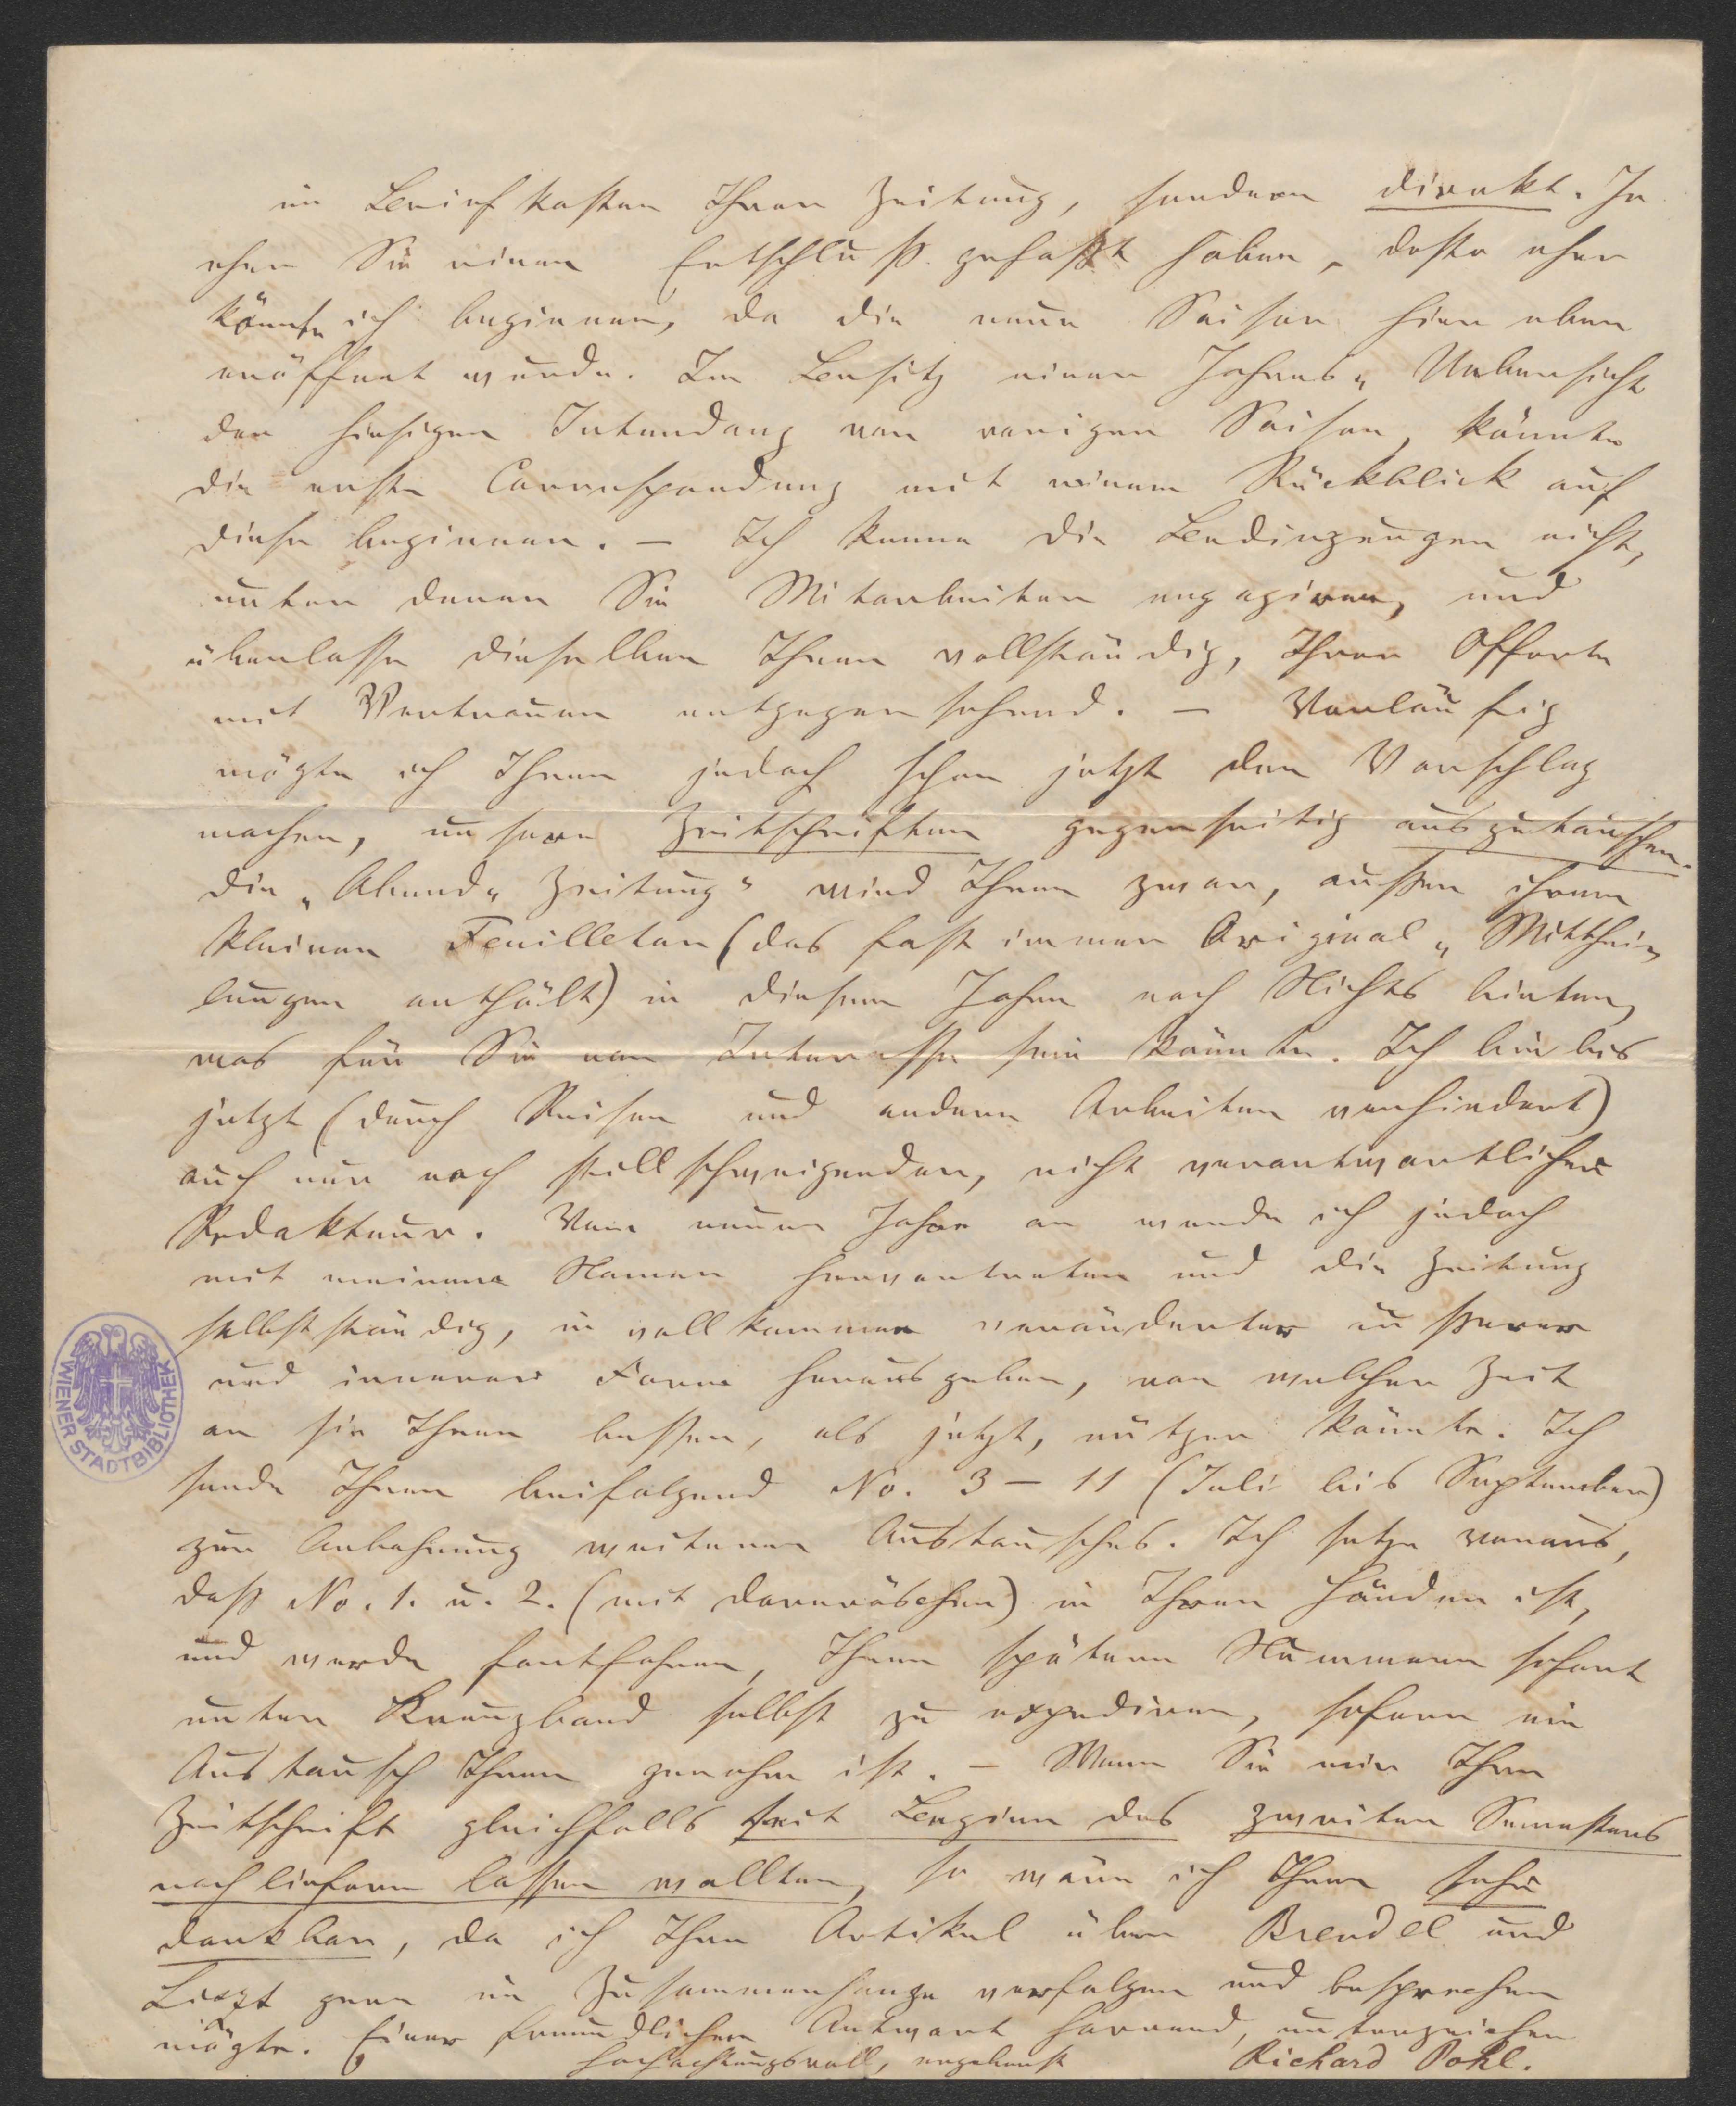 im Briefkasten Ihrer Zeitung, sondern direkt. Je
eher Sie einen Entschluß gefaßt haben, desto eher
könnte ich beginnen, da die neue Saison hier eben
eröffnet wurde. Im Besitz einer Jahres-Uebersicht
der hiesigen Intendanz von voriger Saison, könnte
die erste Correspondenz mit einem Rückblick auf
diese beginnen. — Ich kenne die Bedingungen nicht,
unter denen Sie Mitarbeiter engagiren, und
überlasse dieselben Ihnen vollständig, Ihrer Offerte
mit Vertrauen entgegensehend. — Vorläufig
mögte ich Ihnen jedoch schon jetzt den Vorschlag
machen, unsere Zeitschriften gegenseitig auszutauschen.
Die „Abend-Zeitung" wird Ihnen zwar, außer ihrem
kleinen Feuilleton (das fast immer Original-Mitthei-
lungen enthält) in diesem Jahre noch Nichts bieten,
was für Sie von Interesse sein könnte. Ich bin bis
jetzt (durch Reisen und andere Arbeiten verhindert)
auch nur noch stillschweigender, nicht verantwortlicher
Redakteur. Vom neuen Jahre an werde ich jedoch
mit meinem Namen hervortreten und die Zeitung
selbstständig, in vollkommen veränderter äußerer
und innerer Form herausgeben, von welcher Zeit
an sie Ihnen besser, als jetzt, nützen könnte. Ich
sende Ihnen beifolgend No. 3 — 11 (Juli bis September)
zur Anbahnung weiteren Austausches. Ich setze voraus,
daß No. 1. u. 2. (mit Dornröschen) in Ihren Händen ist,
und werde fortfahren, Ihnen spätere Nummern sofort
unter Kreuzband selbst zu expediren, sofern ein
Austausch Ihnen genehm ist. — Wenn Sie mir Ihre
Zeitschrift gleichfalls seit Beginn des zweiten Semesters
nachliefern lassen wollten, so wäre ich Ihnen sehr
dankbar, da ich Ihre Artikel über Brendel und
Liszt gern im Zusammenhange verfolgen und besprechen
mögte. Einer freundlichen Antwort harrend, unterzeichne
hochachtungsvoll, ergebenst Richard Pohl.
WIENER STADTBIBLIOTHEK